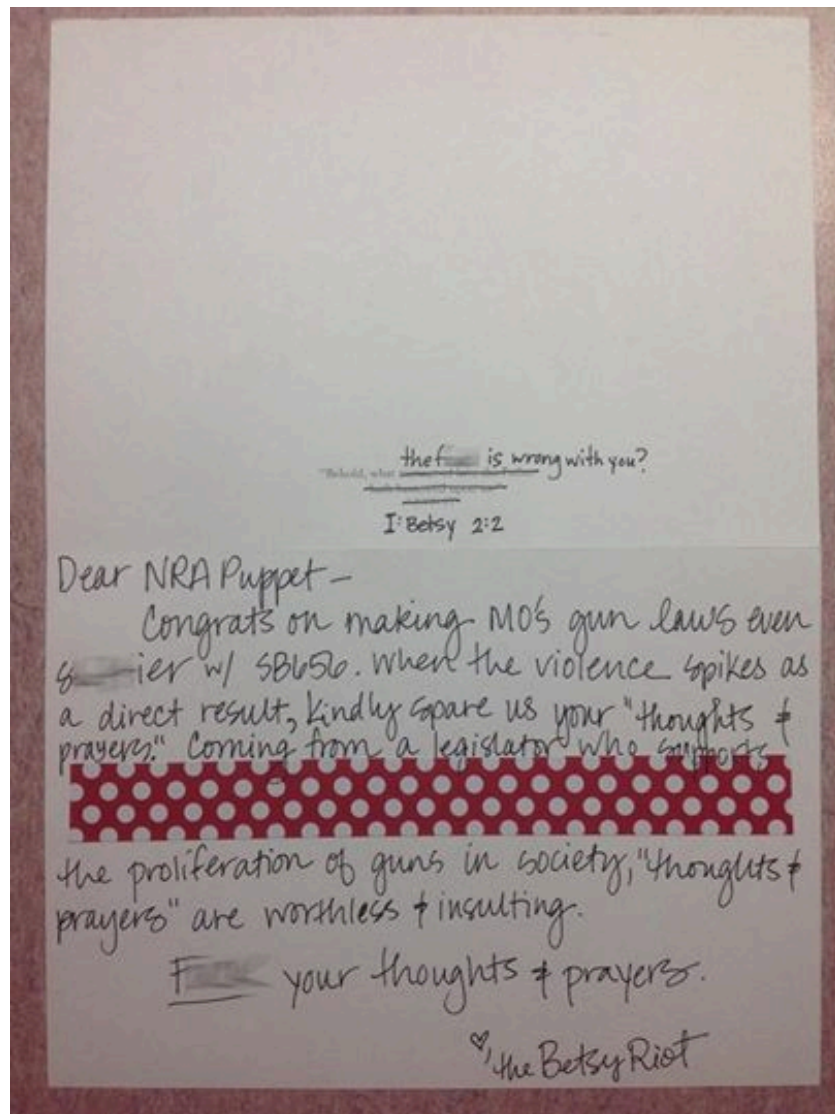 the f is wrong with you?
"Behold, what
I: Betsy 2:2
Dear NRA Puppet –
Congrats on making MO's gun laws even
s ier w/ SB656. When the violence spikes as
a direct result, kindly spare us your "thoughts &
prayers." Coming from a legislator who supports
the proliferation of guns in society, "thoughts &
prayers" are worthless & insulting.
F your thoughts & prayers.
♡, the Betsy Riot